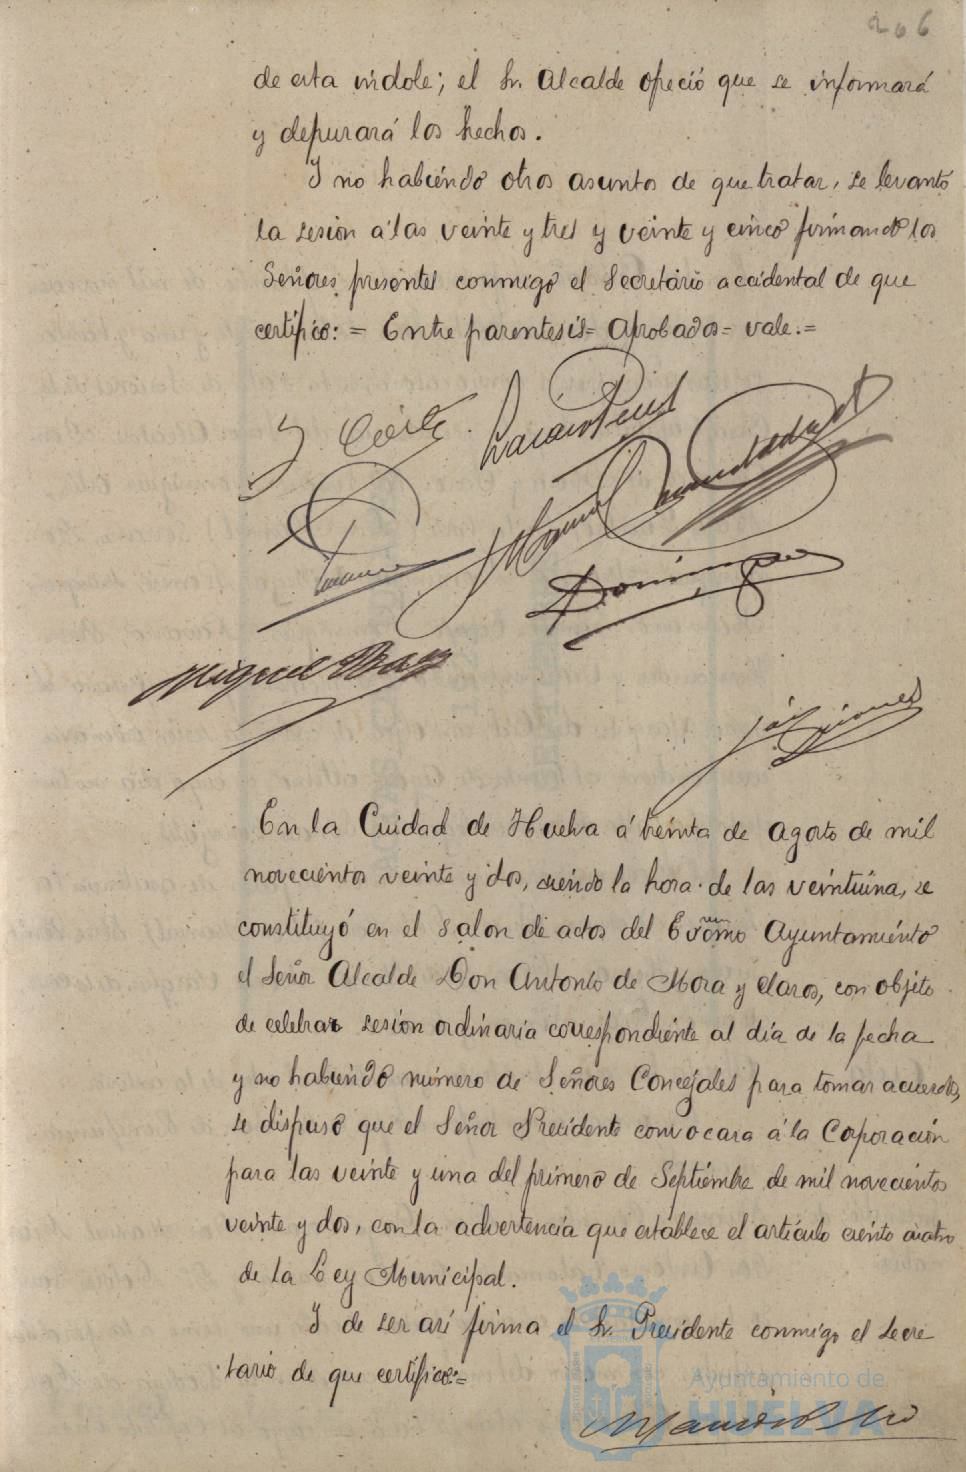 206
de esta indole; el Sr. Alcalde ofreció que se informará
y depurará los hechos.
Y no habiendo otros asuntos de que tratar, se levantó
la sesion a las veinte y tres y veinte y cinco firmando los
Señores presentes conmigo el Secretario accidental de que
certifico: = Entre parentesis = aprobados = vale. =
J Cortés.
Manuel
Dominguez
Miguel Báez
José Jiménez
En la Cuidad de Huelva á treinta de agosto de mil
novecientos veinte y dos, siendo la hora de las veintiuna, se
constituyó en el salon de actos del Excmo Ayuntamiento
el Señor Alcalde Don Antonio de Mora y Claros, con objeto
de celebrar sesion ordinaria correspondiente al día de la fecha
y no habiendo número de Señores Concejales para tomar acuerdos,
se dispuso que el Señor Presidente convocara á la Corporación
para las veinte y una del primero de Septiembre de mil novecientos
veinte y dos, con la advertencia que establece el artículo ciento cuatro
de la Ley Municipal.
Y de ser así firma el Sr. Presidente conmigo el Secre
tario de que certifico: =
Ayuntamiento de
HUELVA